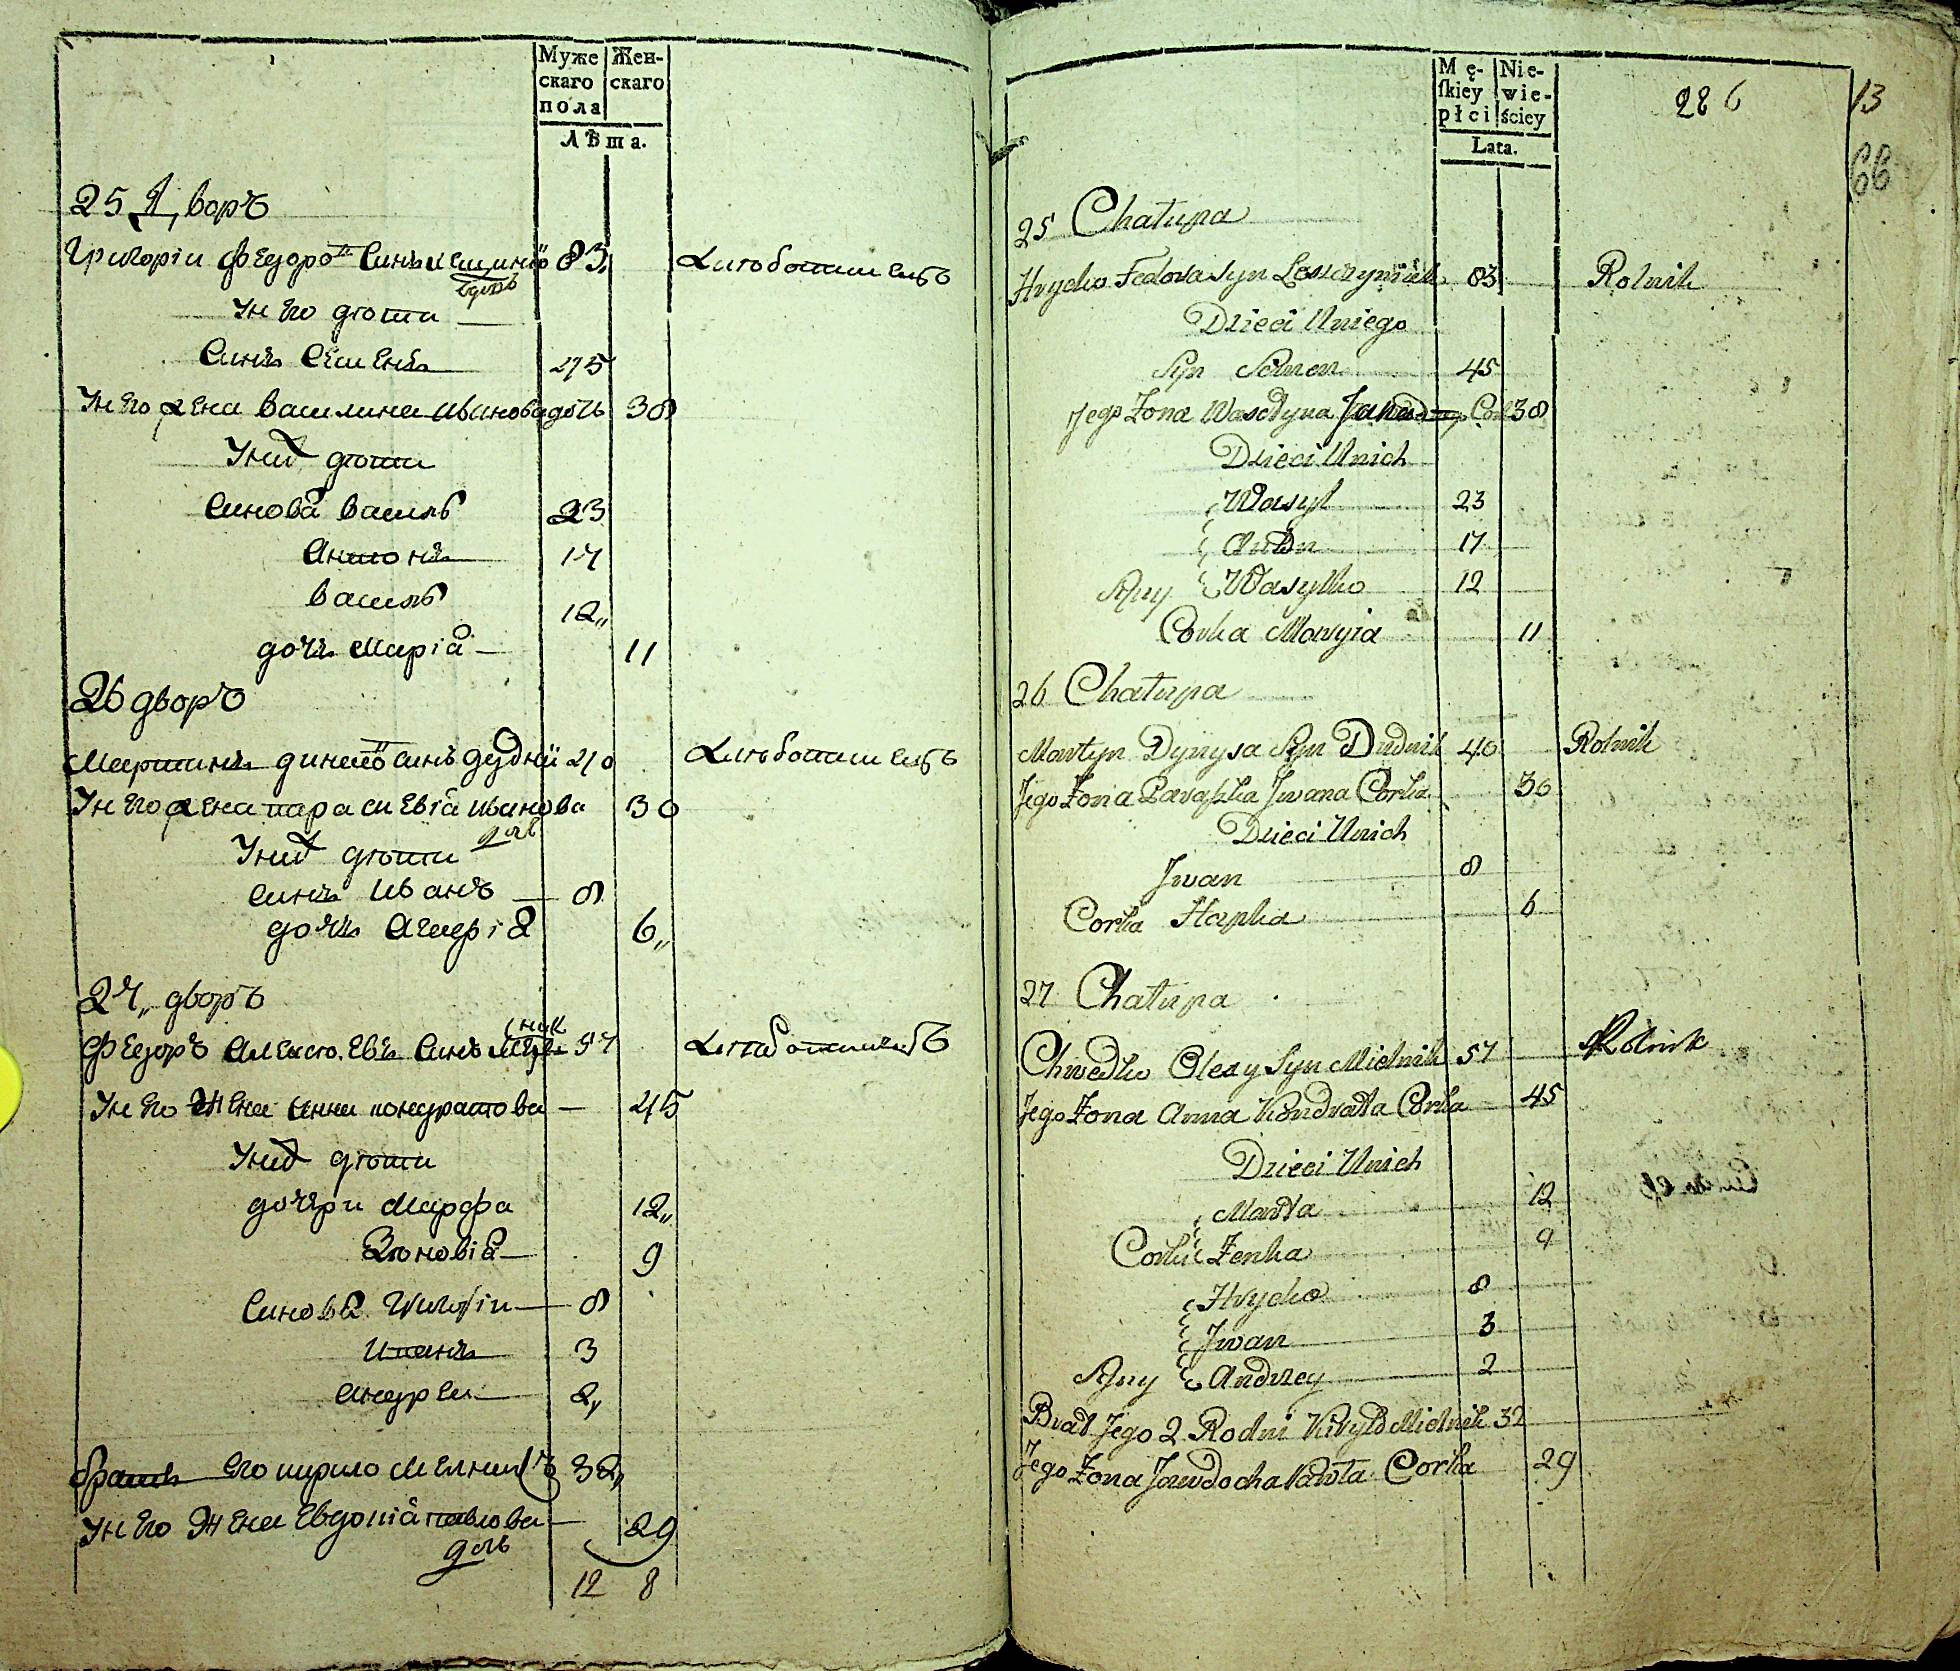 Муже
скаго
пола
Жен-
скаго
Лѣта.
25 Дворъ
Григоріи Федоровъ Синъ 83 Хлѣбопашецъ
У него дѣти
Синъ Семенъ 45
У него жена Василина Иванова дочь 38
У них дѣти
Синовя Василь 23
Антонъ 17
Василь 12
дочь Марія 11
26 дворъ
Мартинъ Синъ дудник 40 Хлѣбопашецъ
У него жена Параскевія Иванова 30
дочь
У них дѣти
Синъ Иванъ 8
дочь Агафія 6
27 дворъ
Федоръ Алексѣевъ Синъ 57 Хлѣбопашецъ
У него Жена Анна Кондратова 45
У них дѣти
дочери Марфа 12
Зѣновія 9
Синовя Григоріи 8
Иванъ 3
Андреи 2
братъ Его Кирило Мелникъ 32
У него Жена Евдокія Павлова 29
дочь
12 8
Mę-
skiey
płci
Nie-
wie-
ściey
Lata.
286
13
66
25 Chałupa
Hryćko Fedora Syn 83 Rolnik
Dzieci Uniego
Syn Semen 45
Jego Żona Wasełyna Jwana Corka 38
Dzieci Unich
Wasyl 23
Anton 17
Syny Wasylko 12
Corka Maryia 11
26 Chałupa
Martyn Dynysa Syn Dudnik 40 Rolnik
Jego Żona Paraska Jwana Corka 30
Dzieci Unich
Jwan 8
Corka Hapka 6
27 Chałupa
Chwedko Olexy Syn Mielnik 57 Rolnik
Jego Żona Anna Kondrata Corka 45
Dzieci Unich
Marta 12
Corki Zenka 9
Hryćko 8
Jwan 3
Syny Andrzey 2
Brat Jego 2 Rodni Kiryło Mielnik 32
Jego Żona Jawdocha Pawła Corka 29